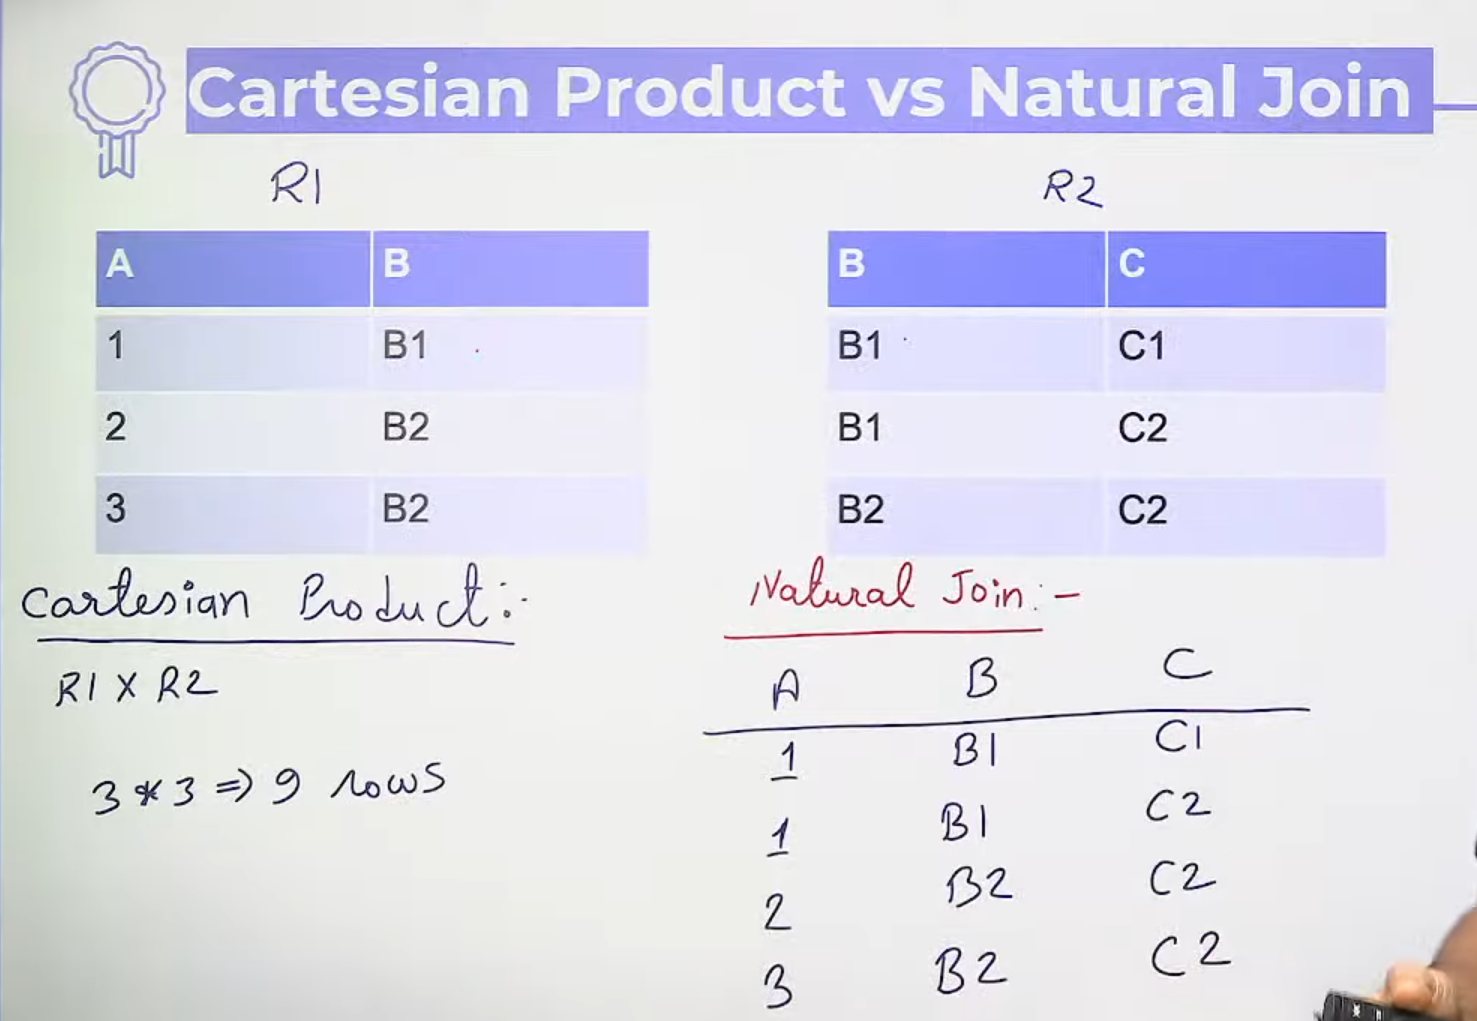 Cartesian Product vs Natural Join
R1
A B
1 B1
2 B2
3 B2
R2
B C
B1 C1
B1 C2
B2 C2
Cartesian Product:-
R1 X R2
3 * 3 => 9 rows
Natural Join:-
A B C
1 B1 C1
1 B1 C2
2 B2 C2
3 B2 C2